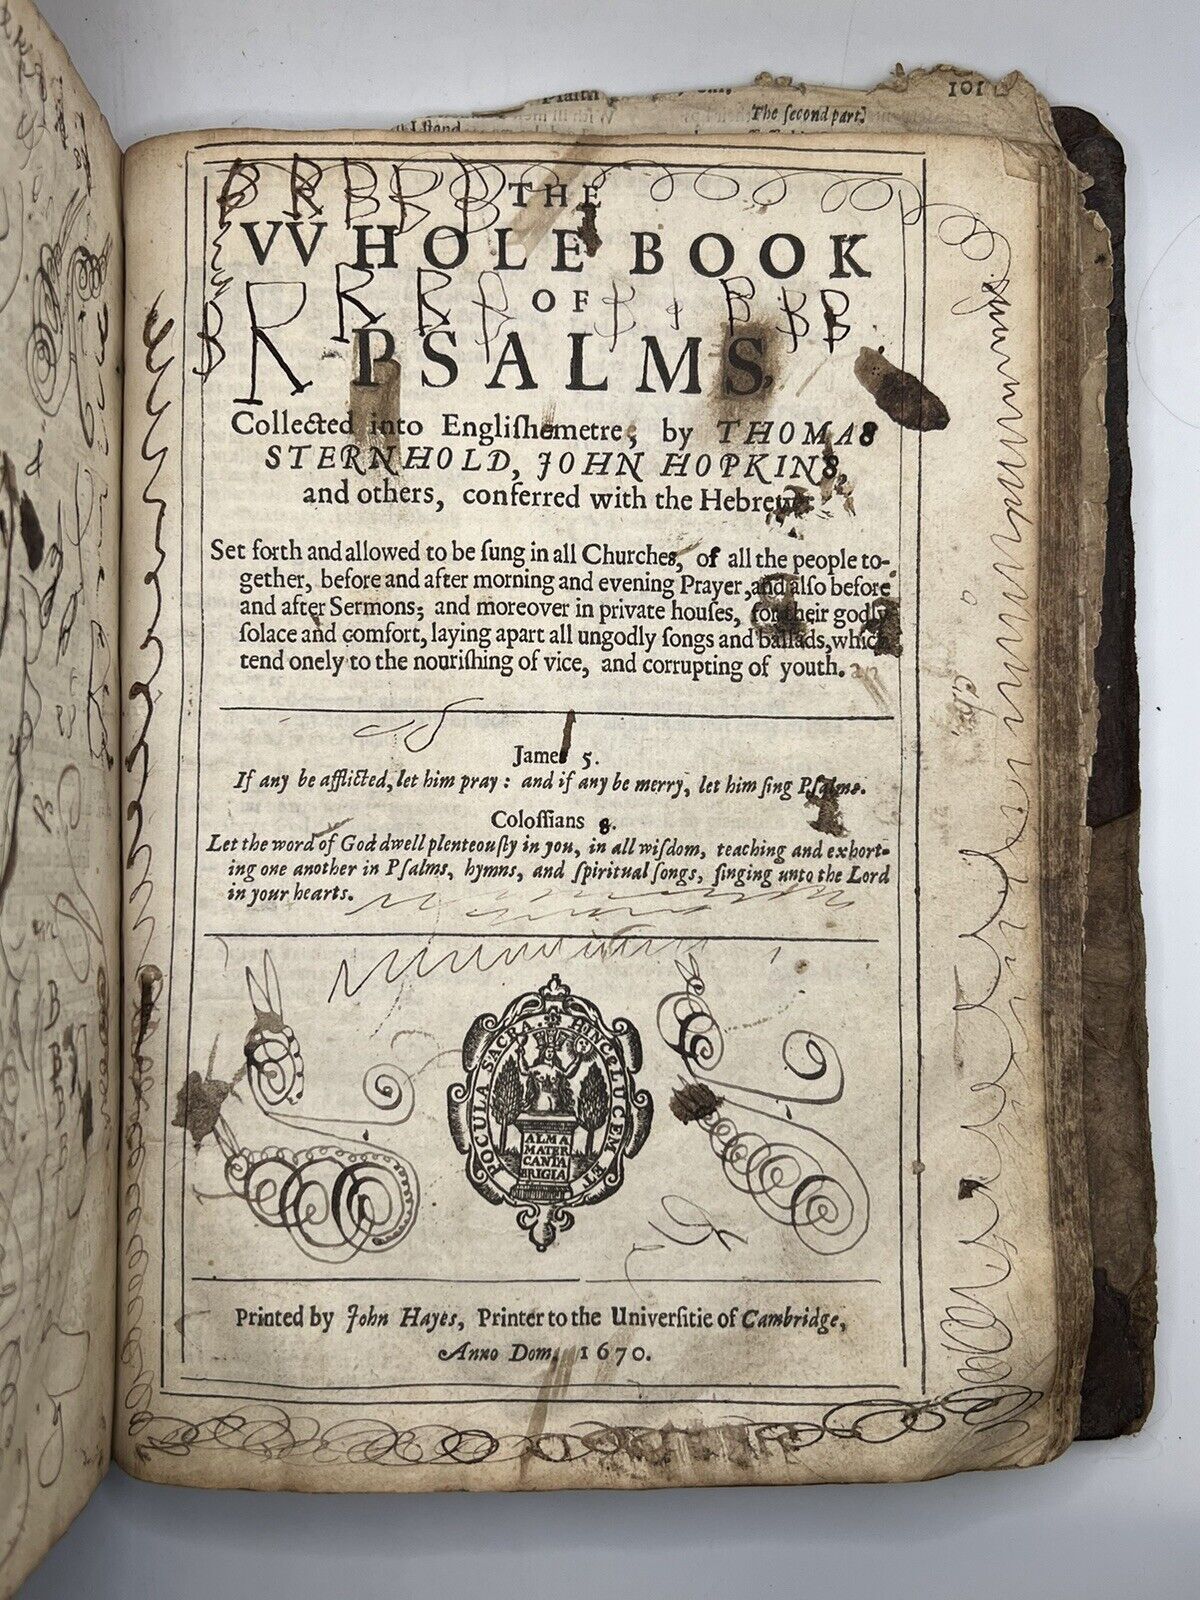 101
The second part.
I stand
THE
VVHOLE BOOK
OF
PSALMS,
Collected into Engliſh metre, by THOMAS
STERNHOLD, JOHN HOPKINS,
and others, conferred with the Hebrew:
Set forth and allowed to be ſung in all Churches, of all the people to-
gether, before and after morning and evening Prayer, and alſo before
and after Sermons; and moreover in private houſes, for their godly
ſolace and comfort, laying apart all ungodly ſongs and ballads, which
tend onely to the nouriſhing of vice, and corrupting of youth.
James 5.
If any be afflicted, let him pray: and if any be merry, let him ſing Pſalms.
Coloſſians
Let the word of God dwell plenteouſly in you, in all wiſdom, teaching and exhort-
ing one another in Pſalms, hymns, and ſpiritual ſongs, ſinging unto the Lord
in your hearts.
HINC LUCEM ET POCULA SACRA
ALMA
MATER
CANTA
BRIGIA
Printed by John Hayes, Printer to the Univerſitie of Cambridge,
Anno Dom. 1670.